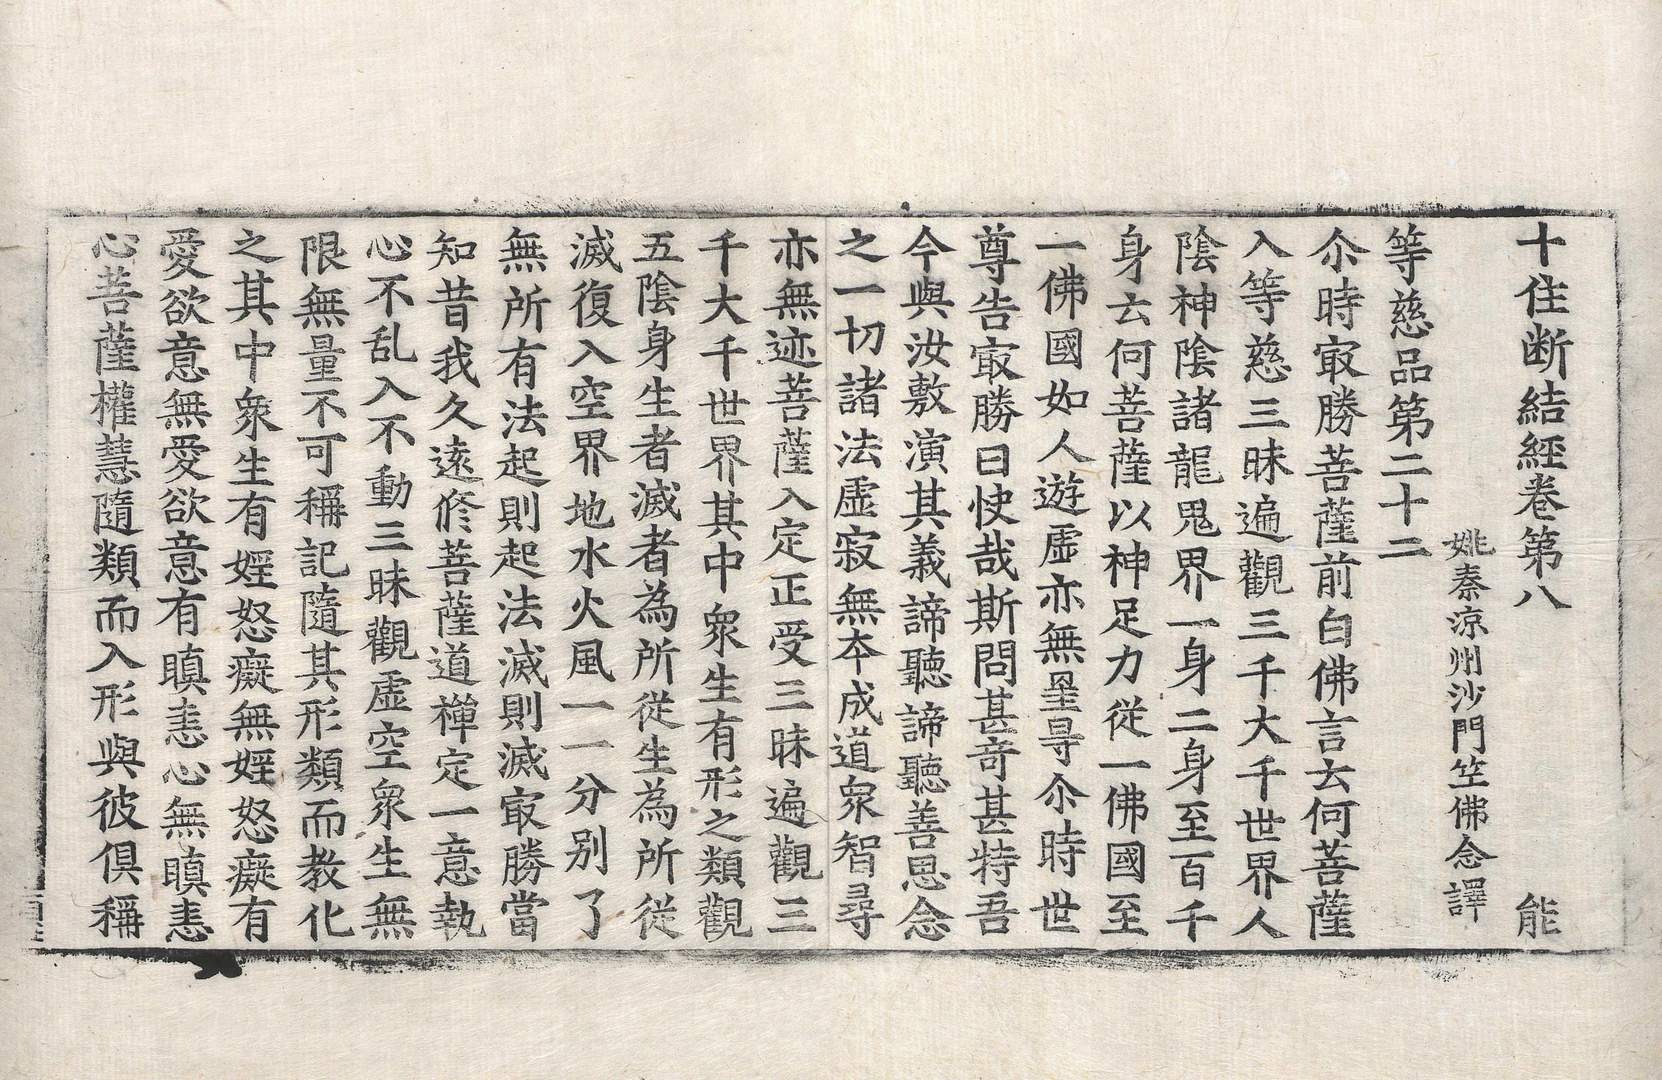 十住断結經卷第八　能
姚秦涼州沙門竺佛念譯
等慈品第二十二
尒時㝡勝菩薩前白佛言云何菩薩
入等慈三昧遍觀三千大千世界人
陰神陰諸龍鬼界一身二身至百千
身云何菩薩以神足力從一佛國至
一佛國如人遊虛亦無罣㝵尒時世
尊告㝡勝曰快哉斯問甚奇甚特吾
今與汝敷演其義諦聽諦聽善思念
之一切諸法虛寂無夲成道衆智尋
亦無迹菩薩入定正受三昧遍觀三
千大千世界其中衆生有形之類觀
五陰身生者滅者為所從生為所從
滅復入空界地水火風一一分别了
無所有法起則起法滅則滅㝡勝當
知昔我久遠修菩薩道禪定一意執
心不乱入不動三昧觀虛空衆生無
限無量不可稱記隨其形類而教化
之其中衆生有婬怒癡無婬怒癡有
愛欲意無愛欲意有瞋恚心無瞋恚
心菩薩權慧隨類而入形與彼俱稱